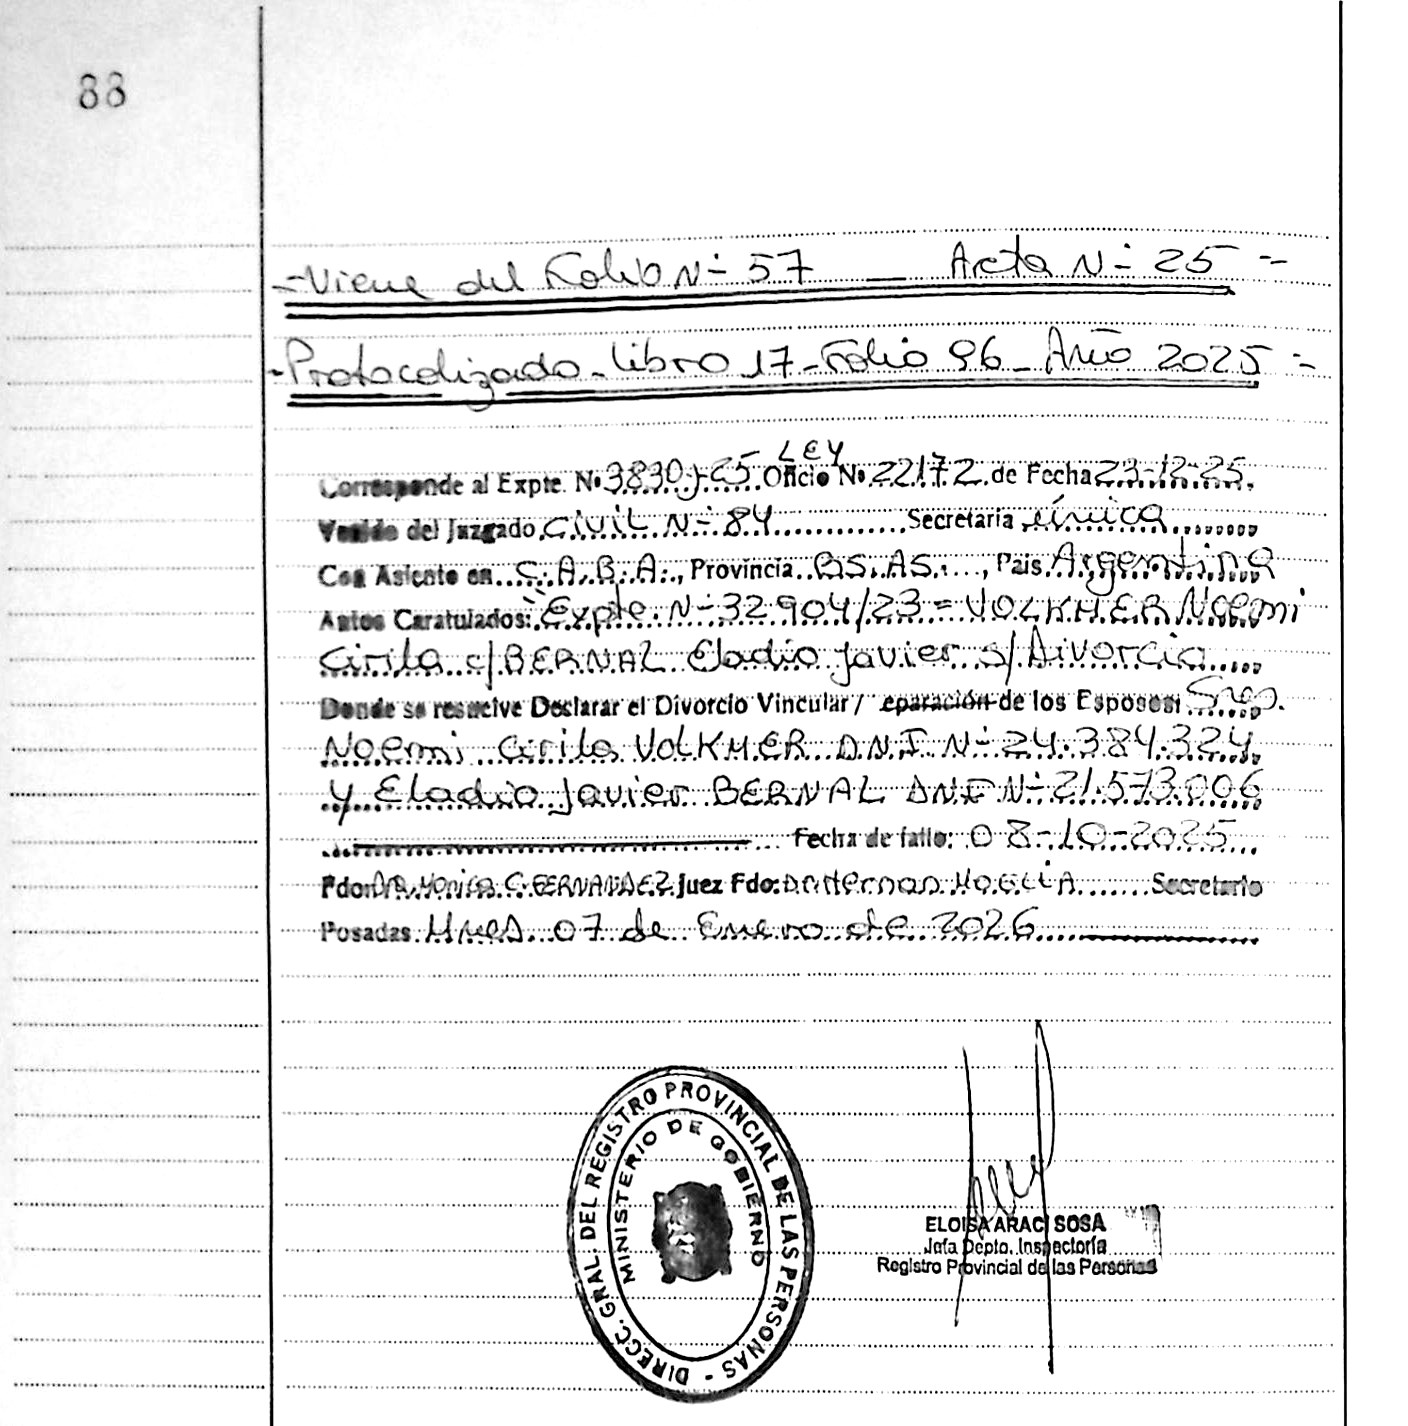 88
-Viene del Folio N- 57 — Acta N- 25 --
-Protocolizado-libro 17-Folio 96-Año 2025--
LEY
Corresponde al Expte. Nº 3830-J-25 Oficio Nº 22172 de Fecha 23-12-25.
Venido del Juzgado CiViL N- 84 Secretaría única
Con Asiento en C.A.B.A., Provincia BS.AS., País Argentina
Autos Caratulados: "Expte. N- 32904/23 = VOLKHER Noemi
Cirila c/BERNAL Eladio Javier s/Divorcio
Donde se resuelve Declarar el Divorcio Vincular / eparación de los Esposos: Sres.
Noemi Cirila VOLKHER DNI N- 24.384.324
y Eladio Javier BERNAL DNI N- 21.573.006
Fecha de fallo: 08-10-2025
Fdo: Dra. Monica C. FERNANDEZ Juez Fdo: Dr. Hernan Secretario
Posadas Mnes 07 de Enero de 2026
DIRECC. GRAL. DEL REGISTRO PROVINCIAL DE LAS PERSONAS -
MINISTERIO DE GOBIERNO
ELOISA ARACI SOSA
Jefa Depto. Inspectoría
Registro Provincial de las Personas